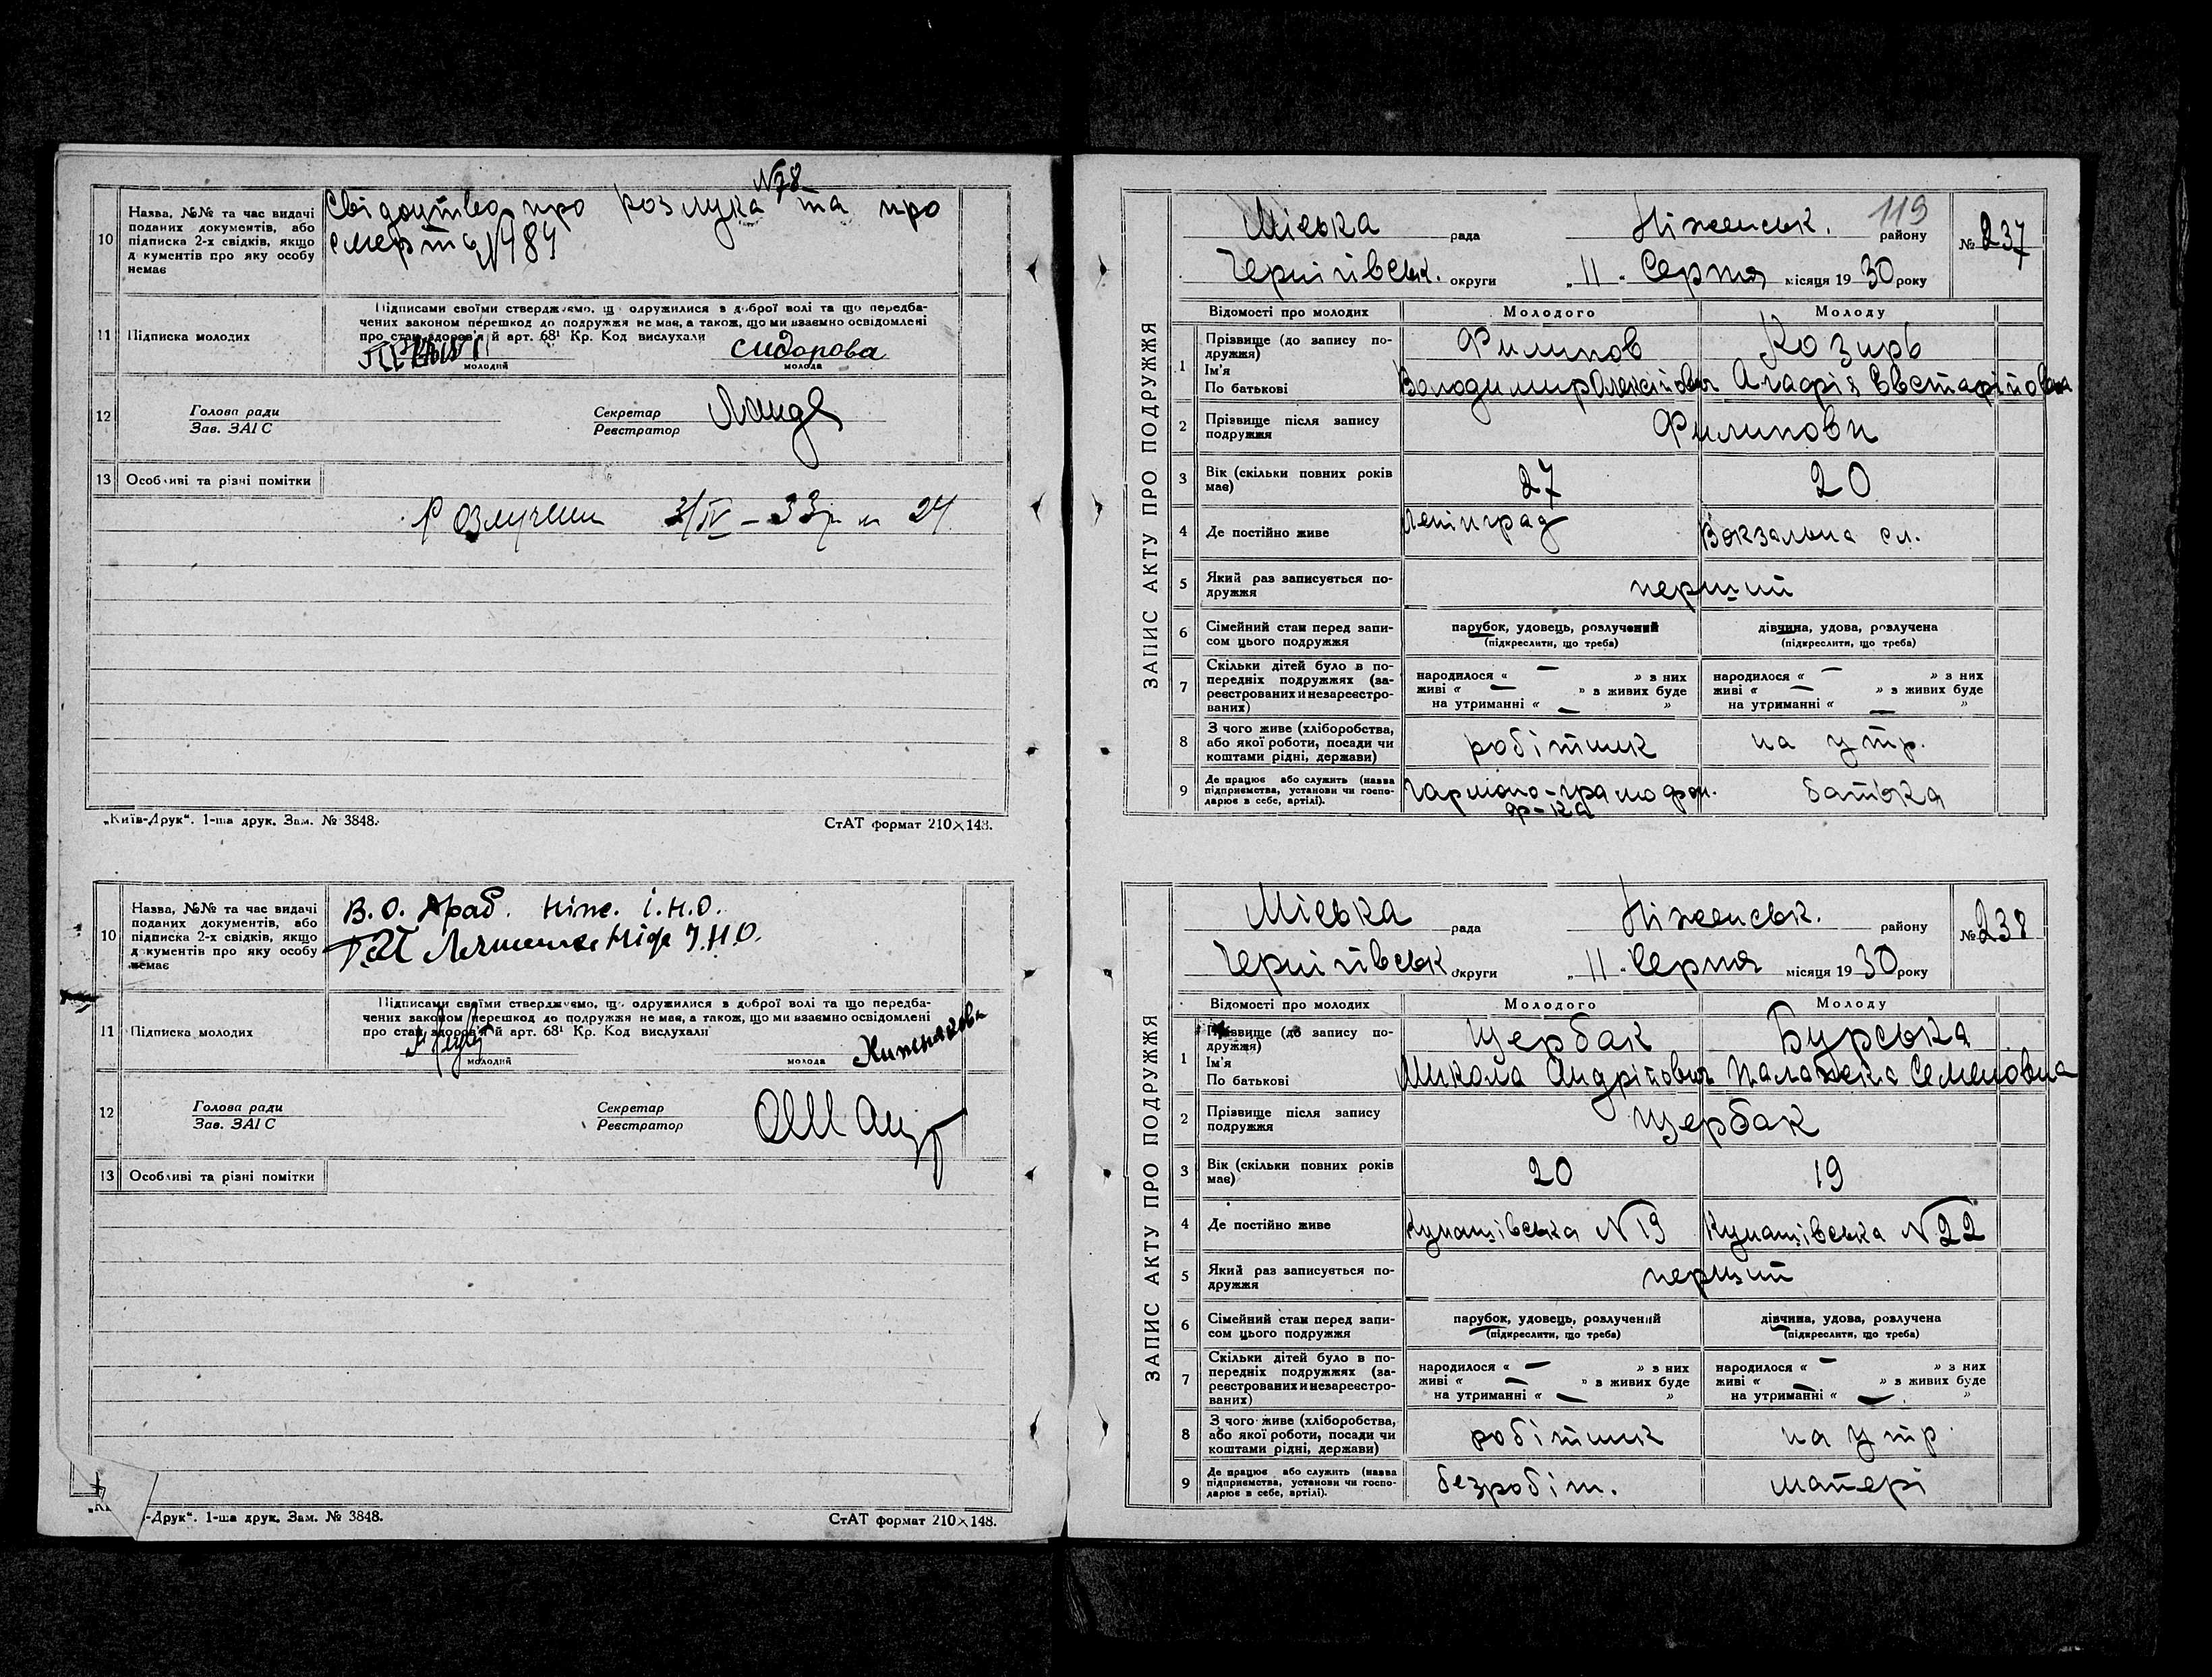 10 Назва, №№ та час видачі поданих документів, або підписка 2-х свідків, якщо д кументів про яку особу немає
N78
Свідоцтво про розлука та про
смерть N484
11 Підписка молодих
Підписами своїми стверджуємо, що одружилися в доброї волі та що передба-
чених законом перешкод до подружжя не має, а також, що ми взаємно освідомлені
про стан здоров'я й арт. 68¹ Кр. Код вислухали
молодий
Сидорова
молода
12 Голова ради
Зав. ЗАГС
Секретар
Реєстратор
13 Особливі та різні помітки
Розлучені 3/IV–33р н 24.
„Київ-Друк“. 1-ша друк. Зам. № 3848.
СтАТ формат 210×148.
10 Назва, №№ та час видачі поданих документів, або підписка 2-х свідків, якщо д кументів про яку особу немає
В.О. Драб. Ніж. І.Н.О.
І.Н.О.
11 Підписка молодих
Підписами своїми стверджуємо, що одружилися в доброї волі та що передба-
чених законом перешкод до подружжя не має, а також, що ми взаємно освідомлені
про стан здоров'я й арт. 68¹ Кр. Код вислухали
молодий
молода
12 Голова ради
Зав. ЗАГС
Секретар
Реєстратор
13 Особливі та різні помітки
-Друк“. 1-ша друк. Зам. № 3848.
СтАТ формат 210×148.
ЗАПИС АКТУ ПРО ПОДРУЖЖЯ
119
Міська рада Ніженськ. району № 237
Чернігівськ. округи „11“ Серпня місяця 1930 року
Відомості про молодих Молодого Молоду
1 Прізвище (до запису подружжя) Филипов Козирь
Ім'я
По батькові Володимир Олексійович Агафія Євстафійовна
2 Прізвище після запису подружжя Филипови
3 Вік (скільки повних років має) 27 20
4 Де постійно живе Ленінград Вокзальна сл.
5 Який раз записується подружжя перший
6 Сімейний стан перед записом цього подружжя парубок, удовець, розлучений дівчина, удова, розлучена
(підкреслити, що треба) (підкреслити, що треба)
7 Скільки дітей було в попередніх подружжях (зареєстрованих и незареєстрованих)
народилося « — » з них народилося « — » з них
живі « — » в живих буде живі « — » в живих буде
на утриманні « — » на утриманні « — »
8 З чого живе (хліборобства, або якої роботи, посади чи коштами рідні, держави) робітник на утр.
9 Де працює або служить (назва підприємства, установи чи господарює в себе, артілі). Гармоно-грамофон. батька
ф-ка
ЗАПИС АКТУ ПРО ПОДРУЖЖЯ
Міська рада Ніженськ. району № 238
Чернігівськ округи „11“ Серпня місяця 1930 року
Відомості про молодих Молодого Молоду
1 Прізвище (до запису подружжя) Щербак Бурська
Ім'я
По батькові Микола Андрійович Палажка Семеновна
2 Прізвище після запису подружжя Щербак
3 Вік (скільки повних років має) 20 19
4 Де постійно живе Кунашівська N 19 Кунашівська N 22
5 Який раз записується подружжя перший
6 Сімейний стан перед записом цього подружжя парубок, удовець, розлучений дівчина, удова, розлучена
(підкреслити, що треба) (підкреслити, що треба)
7 Скільки дітей було в попередніх подружжях (зареєстрованих и незареєстрованих)
народилося « — » з них народилося « — » з них
живі « — » в живих буде живі « — » в живих буде
на утриманні « — » на утриманні « — »
8 З чого живе (хліборобства, або якої роботи, посади чи коштами рідні, держави) робітник на утр.
9 Де працює або служить (назва підприємства, установи чи господарює в себе, артілі). безробіт. матері